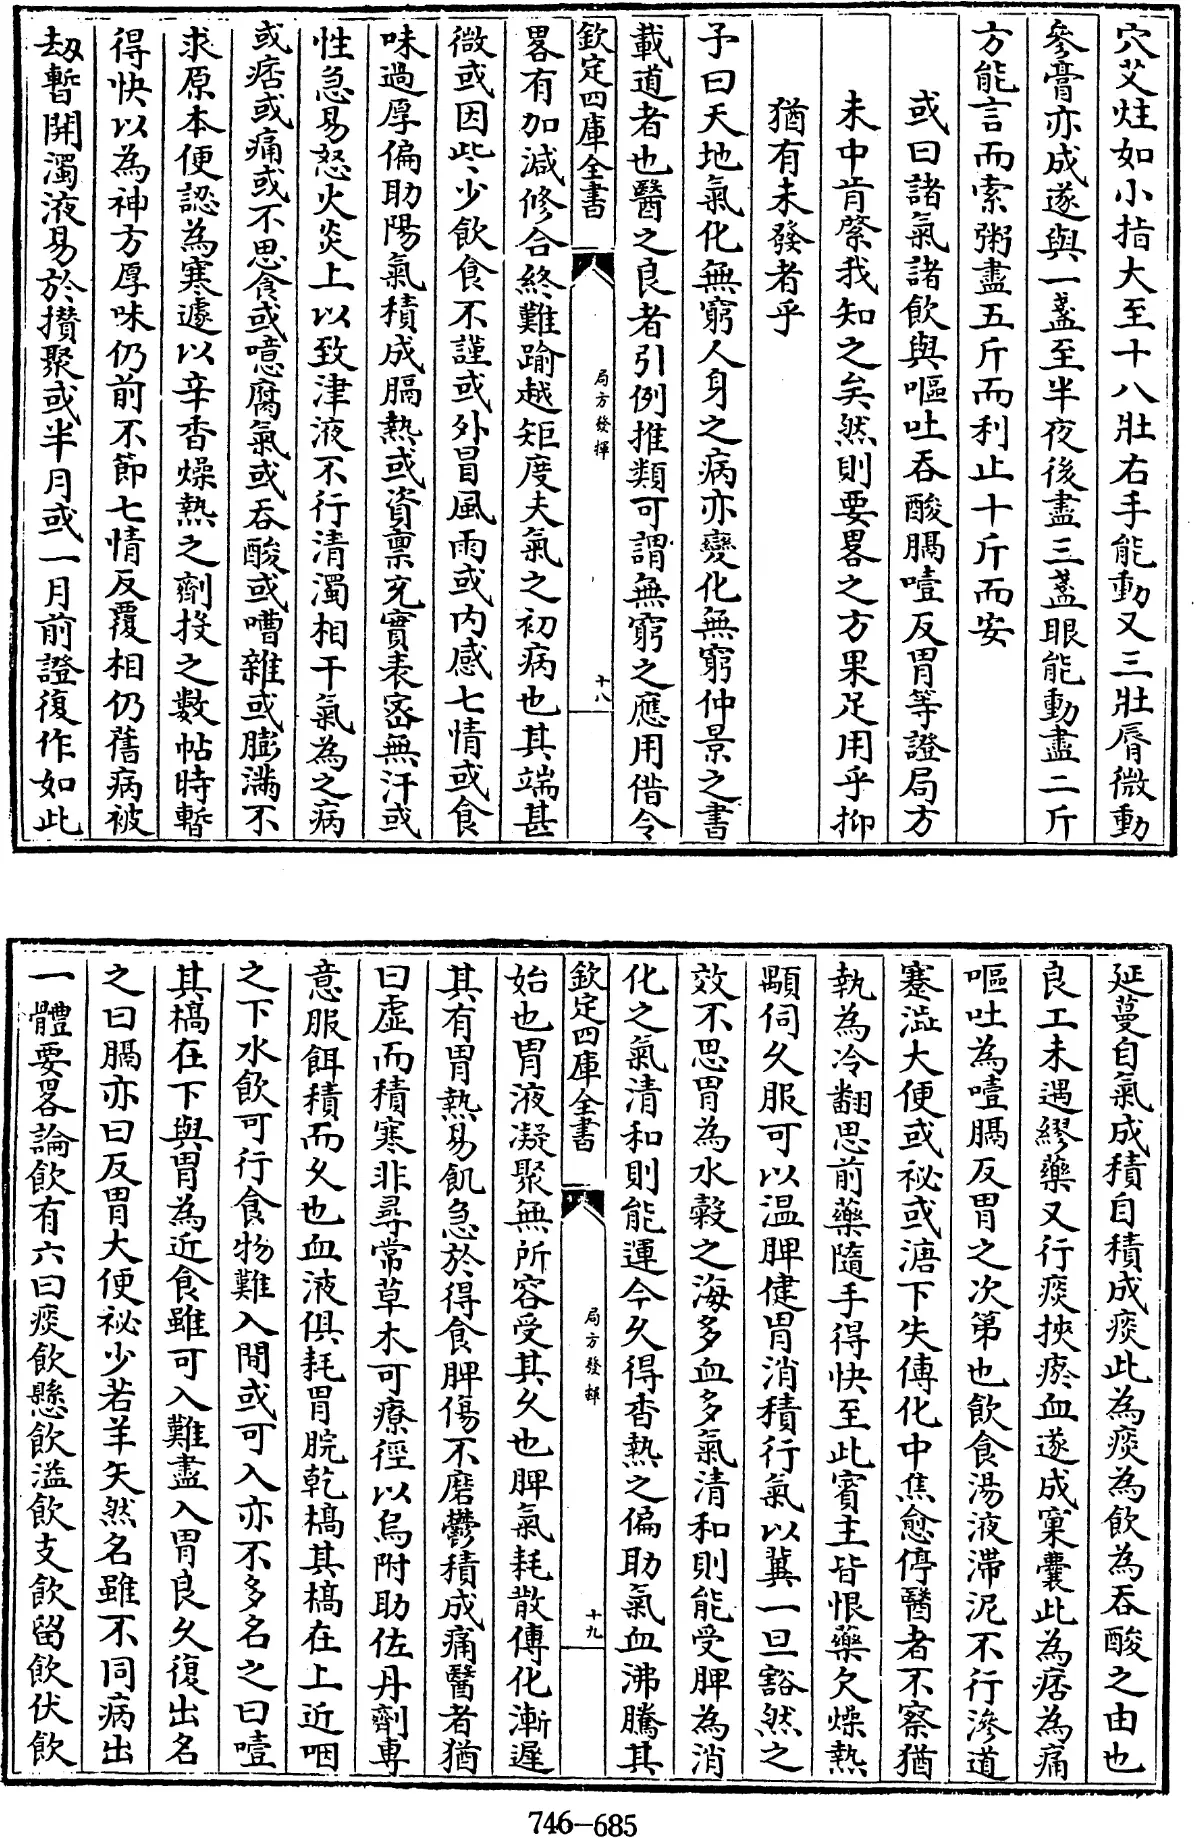 穴艾炷如小指大至十八壯右手能動又三壯脣微動
參膏亦成遂與一盞至半夜後盡三盞眼能動盡二斤
方能言而索粥盡五斤而利止十斤而安
或曰諸氣諸飲與嘔吐吞酸膈噎反胃等證局方
未中肯綮我知之矣然則要畧之方果足用乎抑
猶有未發者乎
予曰天地氣化無窮人身之病亦變化無窮仲景之書
載道者也醫之良者引例推類可謂無窮之應用借令
欽定四庫全書
局方發揮
十八
畧有加減修合終難踰越矩度夫氣之初病也其端甚
微或因些少飲食不謹或外冒風雨或内感七情或食
味過厚偏助陽氣積成膈熱或資禀充實表宻無汗或
性急易怒火炎上以致津液不行清濁相干氣為之病
或痞或痛或不思食或噫腐氣或吞酸或嘈雜或膨滿不
求原本便認為寒遽以辛香燥熱之劑投之數帖時暫
得快以為神方厚味仍前不節七情反覆相仍舊病被
刼暫開濁液易於攅聚或半月或一月前證復作如此
延蔓自氣成積自積成痰此為痰為飲為吞酸之由也
良工未遇繆藥又行痰挾瘀血遂成窠囊此為痞為痛
嘔吐為噎膈反胃之次第也飲食湯液滯泥不行滲道
蹇澁大便或秘或溏下失傳化中焦愈停醫者不察猶
執為冷翻思前藥隨手得快至此賓主皆恨藥欠燥熱
顒伺久服可以温脾健胃消積行氣以冀一旦豁然之
效不思胃為水穀之海多血多氣清和則能受脾為消
化之氣清和則能運今久得香熱之偏助氣血沸騰其
欽定四庫全書
局方發揮
十九
始也胃液凝聚無所容受其久也脾氣耗散傳化漸遲
其有胃熱易飢急於得食脾傷不磨鬱積成痛醫者猶
曰虛而積寒非尋常草木可療徑以烏附助佐丹劑專
意服餌積而久也血液俱耗胃脘乾槁其槁在上近咽
之下水飲可行食物難入間或可入亦不多名之曰噎
其槁在下與胃為近食雖可入難盡入胃良久復出名
之曰膈亦曰反胃大便秘少若羊矢然名雖不同病出
一體要畧論飲有六曰痰飲懸飲溢飲支飲留飲伏飲
746-685